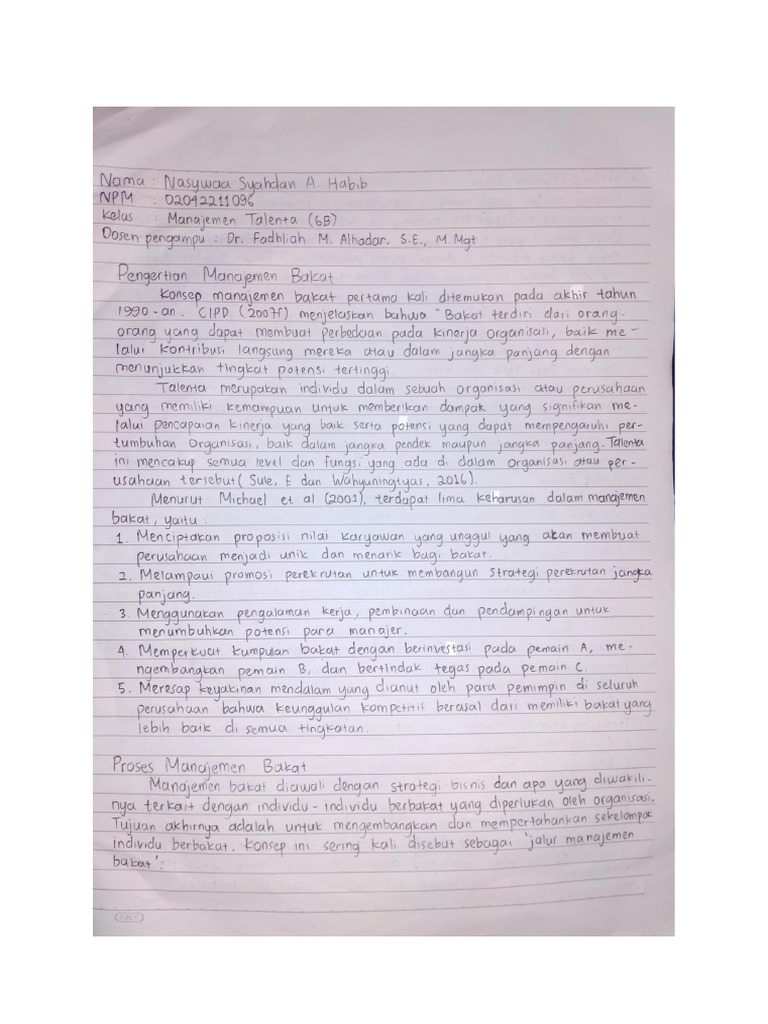 Nama : Nasywaa Syahdan A. Habib
NPM : 02042211096
Kelas : Manajemen Talenta (6B)
Dosen pengampu : Dr. Fadhliah M. Alhadar, S.E., M.Mgt
Pengertian Manajemen Bakat
Konsep manajemen bakat pertama kali ditemukan pada akhir tahun
1990-an. CIPD (2007f) menjelaskan bahwa "Bakat terdiri dari orang-
orang yang dapat membuat perbedaan pada kinerja organisasi, baik me-
lalui kontribusi langsung mereka atau dalam jangka panjang dengan
menunjukkan tingkat potensi tertinggi.
Talenta merupakan individu dalam sebuah organisasi atau perusahaan
yang memiliki kemampuan untuk memberikan dampak yang signifikan me-
lalui pencapaian kinerja yang baik serta potensi yang dapat mempengaruhi per-
tumbuhan Organisasi, baik dalam jangka pendek maupun jangka panjang. Talenta
ini mencakup semua level dan fungsi yang ada di dalam organisasi atau per-
usahaan tersebut (Sule, E dan Wahyuningtyas, 2016).
Menurut Michael et al (2001), terdapat lima keharusan dalam manajemen
bakat, yaitu :
1. Menciptakan proposisi nilai karyawan yang unggul yang akan membuat
perusahaan menjadi unik dan menarik bagi bakat.
2. Melampaui promosi perekrutan untuk membangun strategi perekrutan jangka
panjang.
3. Menggunakan pengalaman kerja, pembinaan dan pendampingan untuk
menumbuhkan potensi para manajer.
4. Memperkuat kumpulan bakat dengan berinvestasi pada pemain A, me-
ngembangkan pemain B, dan bertindak tegas pada pemain C.
5. Meresap keyakinan mendalam yang dianut oleh para pemimpin di seluruh
perusahaan bahwa keunggulan kompetitif berasal dari memiliki bakat yang
lebih baik di semua tingkatan.
Proses Manajemen Bakat
Manajemen bakat diawali dengan strategi bisnis dan apa yang diwakili-
nya terkait dengan individu-individu berbakat yang diperlukan oleh organisasi.
Tujuan akhirnya adalah untuk mengembangkan dan mempertahankan sekelompok
individu berbakat. Konsep ini sering kali disebut sebagai 'jalur manajemen
bakat':